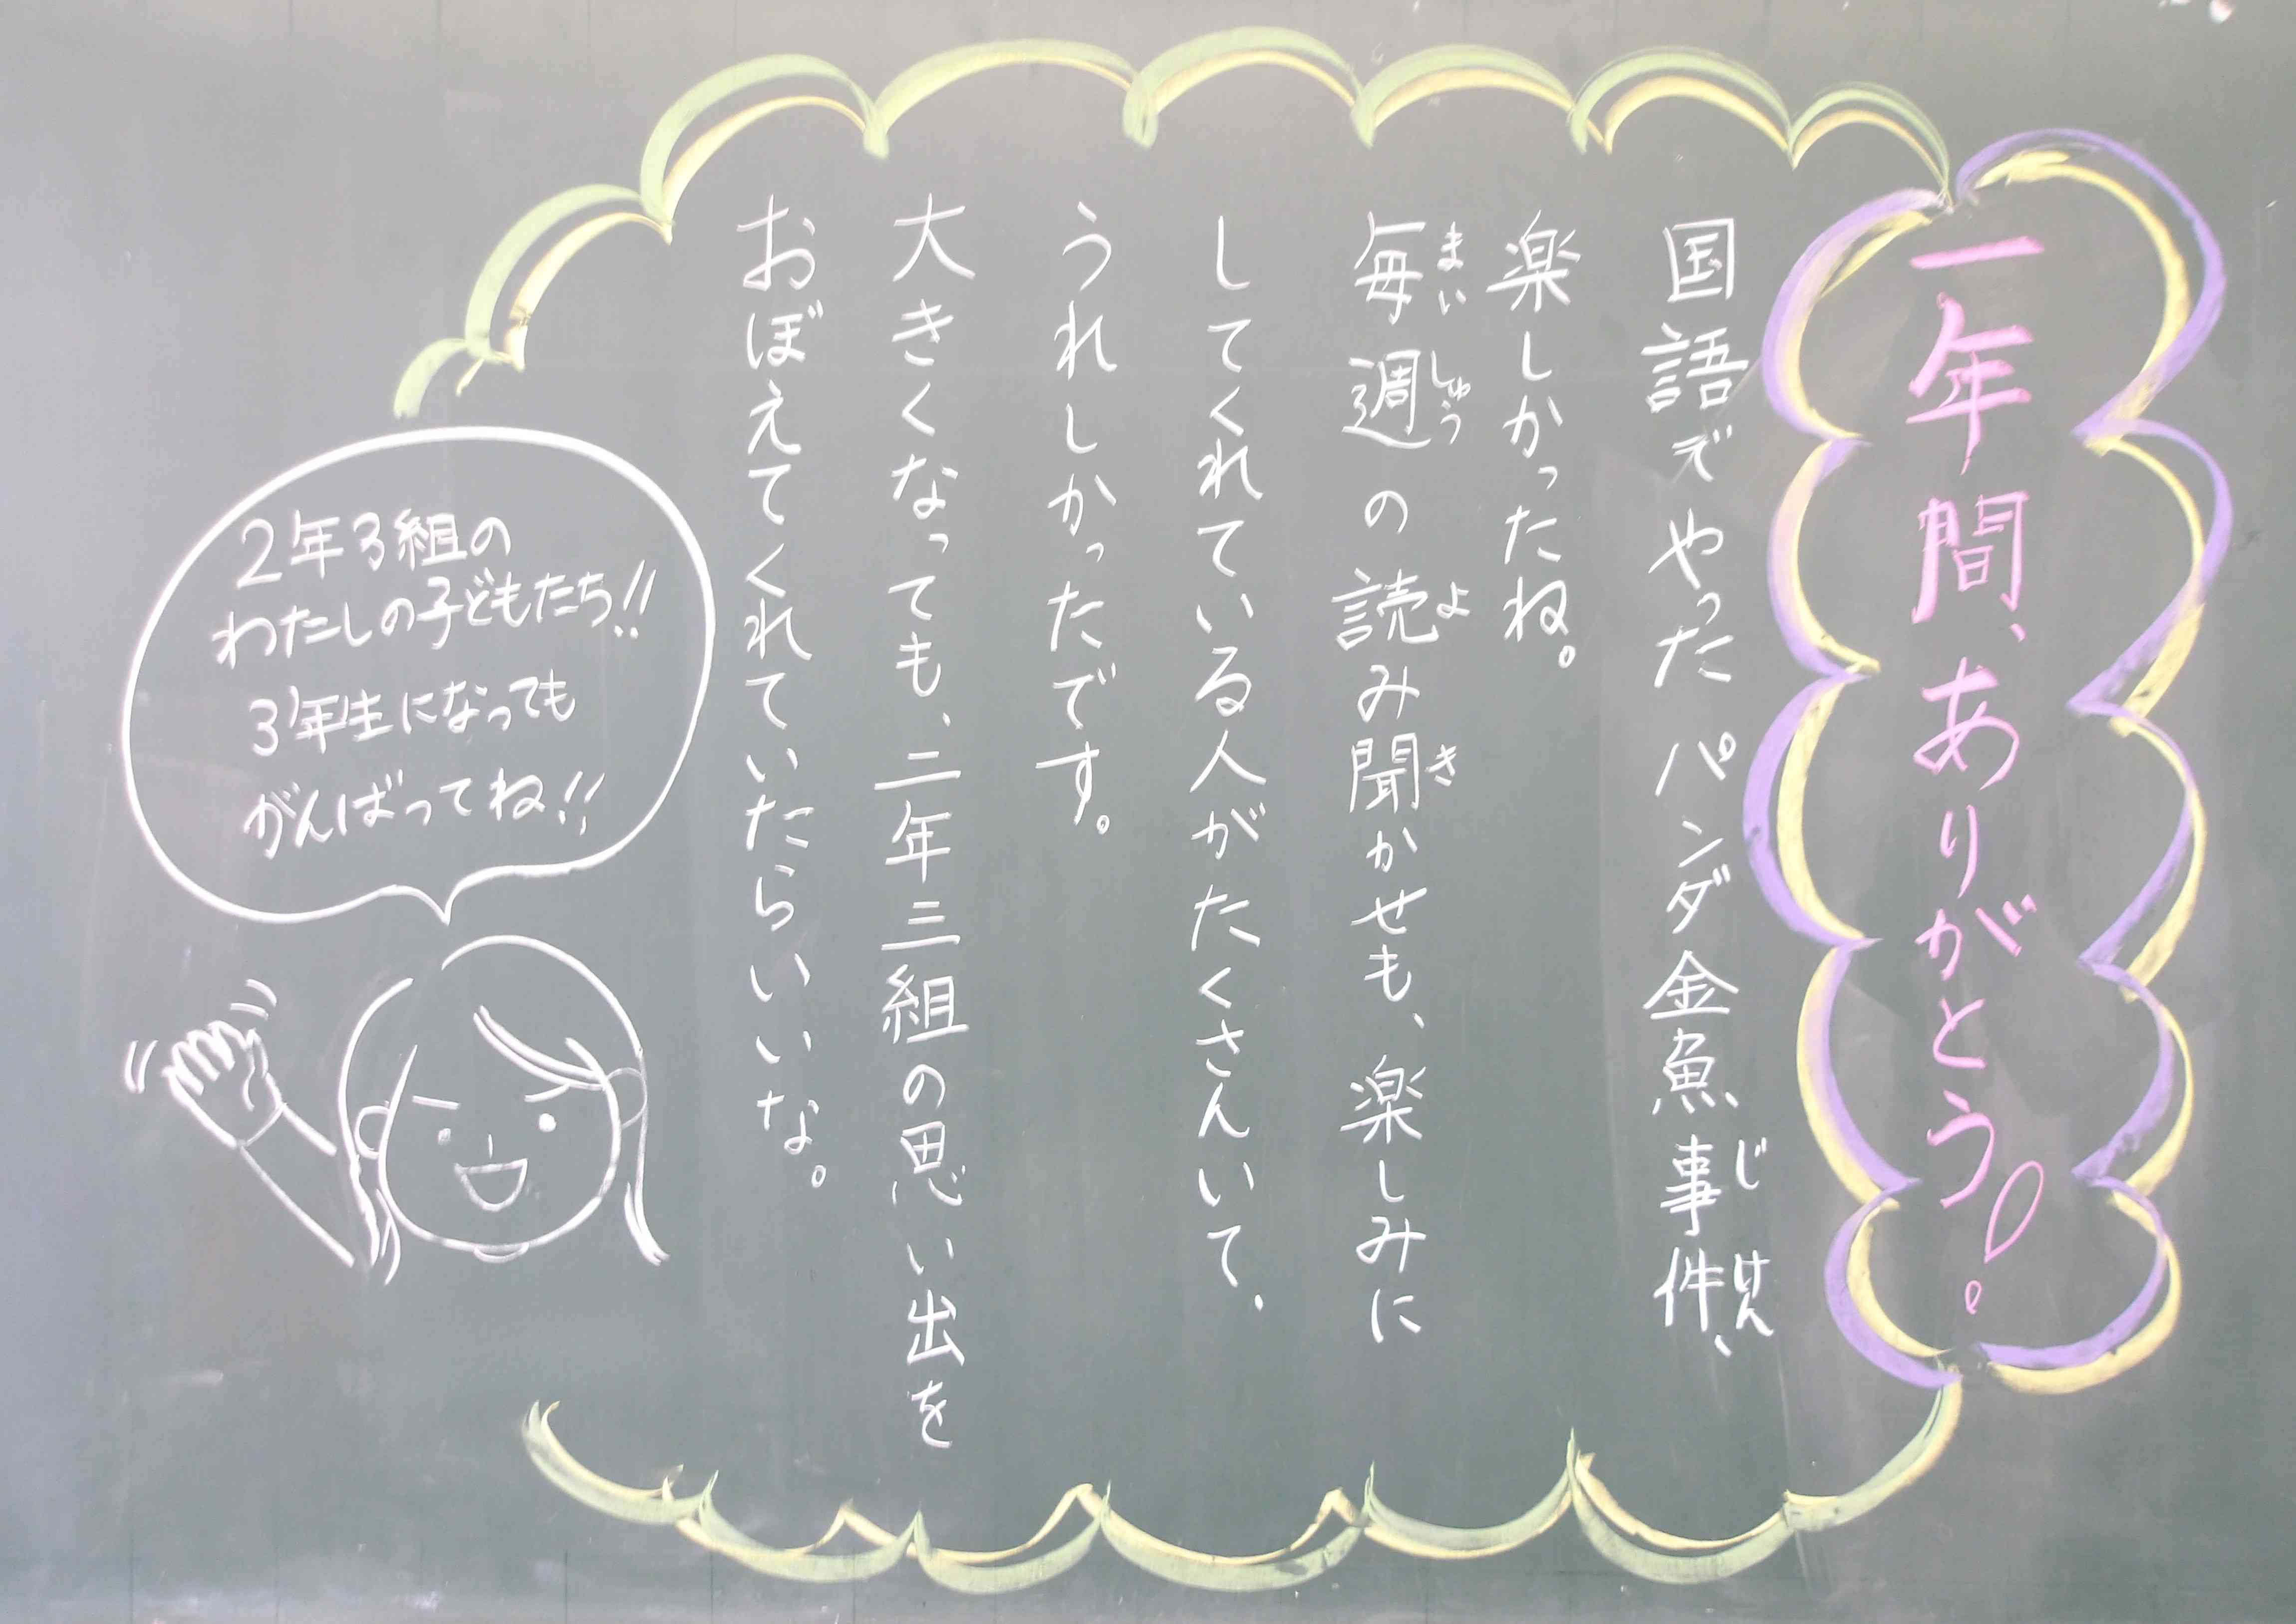 一年間、ありがとう!
国語でやったパンダ金魚事件、
じけん
楽しかったね。
毎週の読み聞かせも、楽しみに
まいしゅう よ き
してくれている人がたくさんいて、
うれしかったです。
大きくなっても、二年三組の思い出を
おぼえてくれていたらいいな。
2年3組の
わたしの子どもたち!!
3年生になっても
がんばってね!!